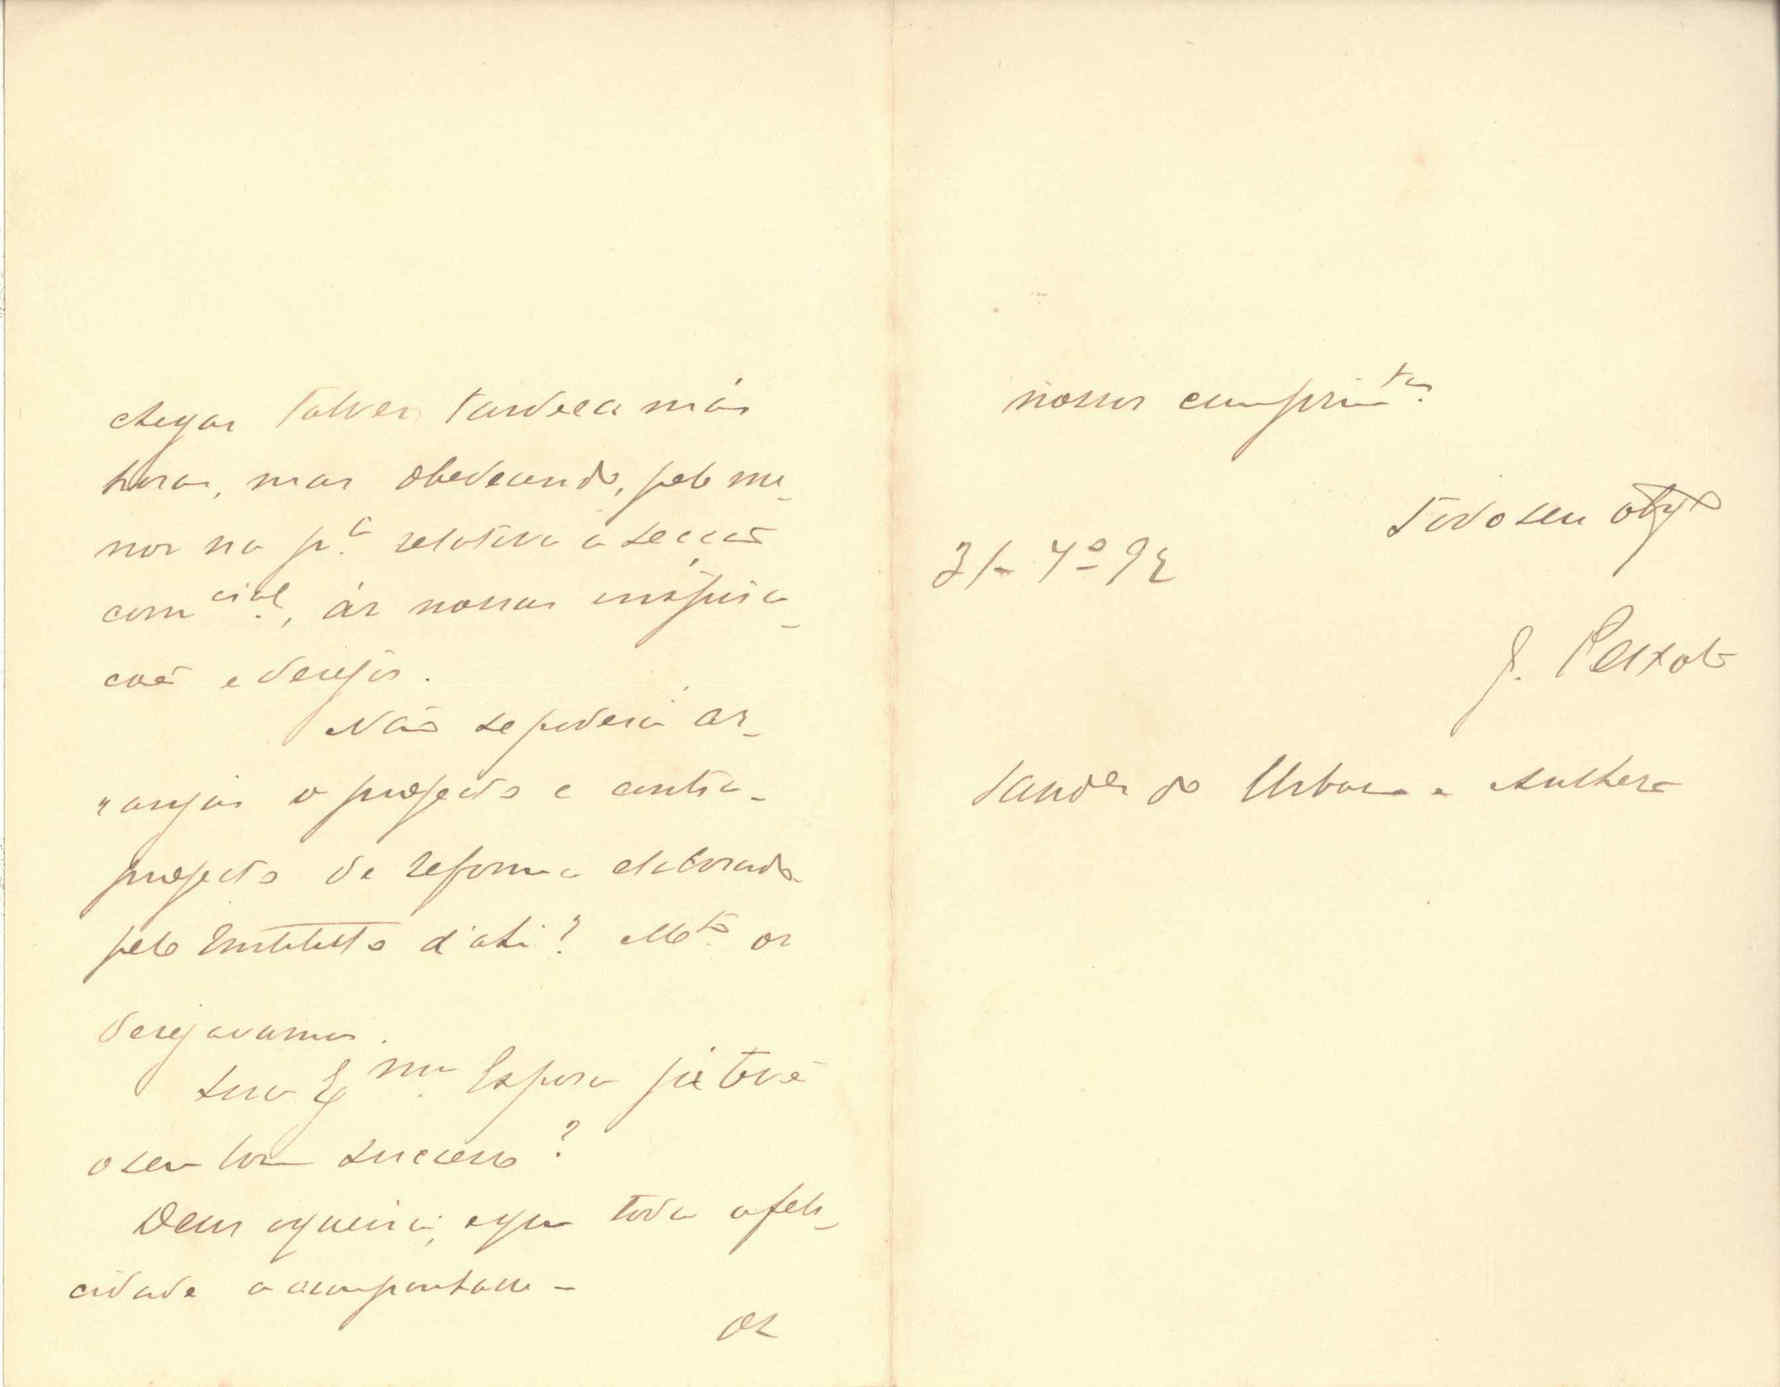 chegar talvez tarde e a más
horas, mas obedecendo, pelo me-
nos na p.te relativa á secção
com cial., ás nossas inspira-
coẽs e desejos.
Não se poderá ar-
ranjar o projecto e contra-
projecto de reforma elaborado
pelo Instituto d'ahi? Mto. os
desejavamos.
Sua Exma. Esposa já teve
o seu bom successo?
Deus o queira, e que toda a feli-
cidade a acompanhasse -
Os
nossos cumprimtos.
Todo seu obgo
31- 7º 92
J. Peixoto
Saudes do Urbano e